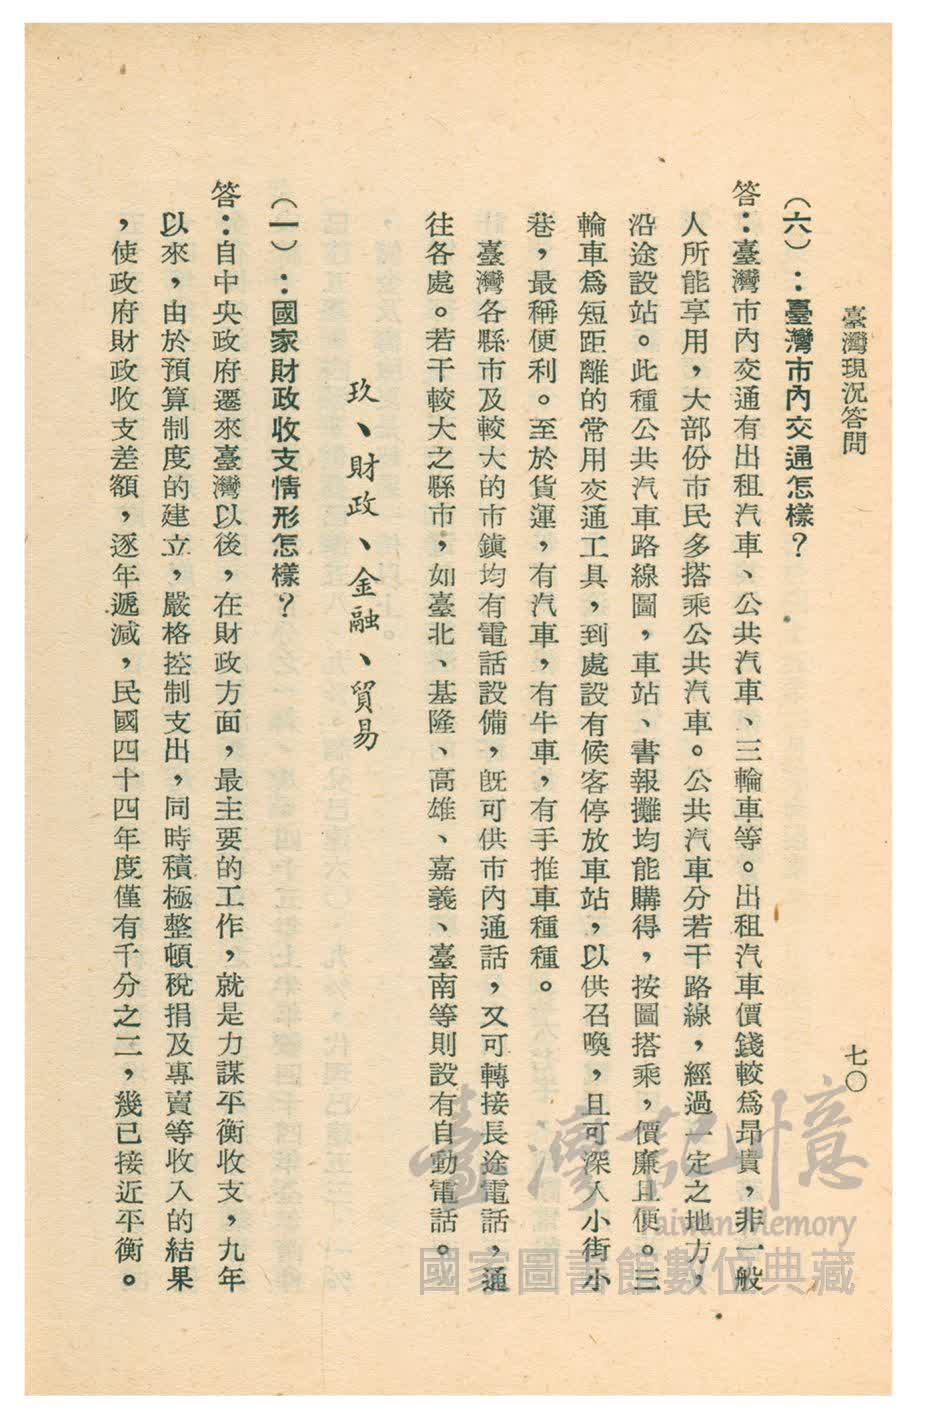 臺灣現況答問
七〇
（六）：臺灣市內交通怎樣？
答：臺灣市內交通有出租汽車、公共汽車、三輪車等。出租汽車價錢較爲昂貴，非一般
人所能享用，大部份市民多搭乘公共汽車。公共汽車分若干路線，經過一定之地方，
沿途設站。此種公共汽車路線圖，車站、書報攤均能購得，按圖搭乘，價廉且便。三
輪車爲短距離的常用交通工具，到處設有候客停放車站，以供召喚，且可深入小街小
巷，最稱便利。至於貨運，有汽車，有牛車，有手推車種種。
臺灣各縣市及較大的市鎮均有電話設備，旣可供市內通話，又可轉接長途電話，通
往各處。若干較大之縣市，如臺北、基隆、高雄、嘉義、臺南等則設有自動電話。
玖、財政、金融、貿易
（一）：國家財政收支情形怎樣？
答：自中央政府遷來臺灣以後，在財政方面，最主要的工作，就是力謀平衡收支，九年
以來，由於預算制度的建立，嚴格控制支出，同時積極整頓稅捐及專賣等收入的結果
，使政府財政收支差額，逐年遞減，民國四十四年度僅有千分之二，幾已接近平衡。
臺灣記憶
Taiwan Memory
國家圖書館數位典藏